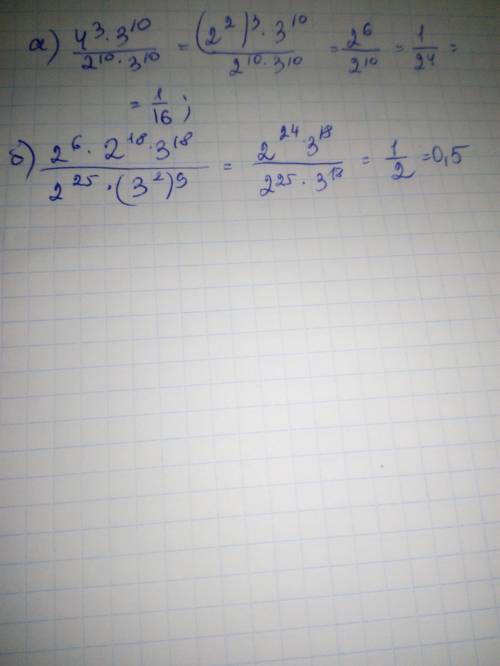 а) 4³·3¹⁰ / 2¹⁰·3¹⁰ = (2²)³·3¹⁰ / 2¹⁰·3¹⁰ = 2⁶ / 2¹⁰ = 1 / 2⁴ =
= 1 / 16 ;
б) 2⁶·2¹⁸·3¹⁸ / 2²⁵·(3²)⁹ = 2²⁴·3¹⁸ / 2²⁵·3¹⁸ = 1 / 2 = 0,5